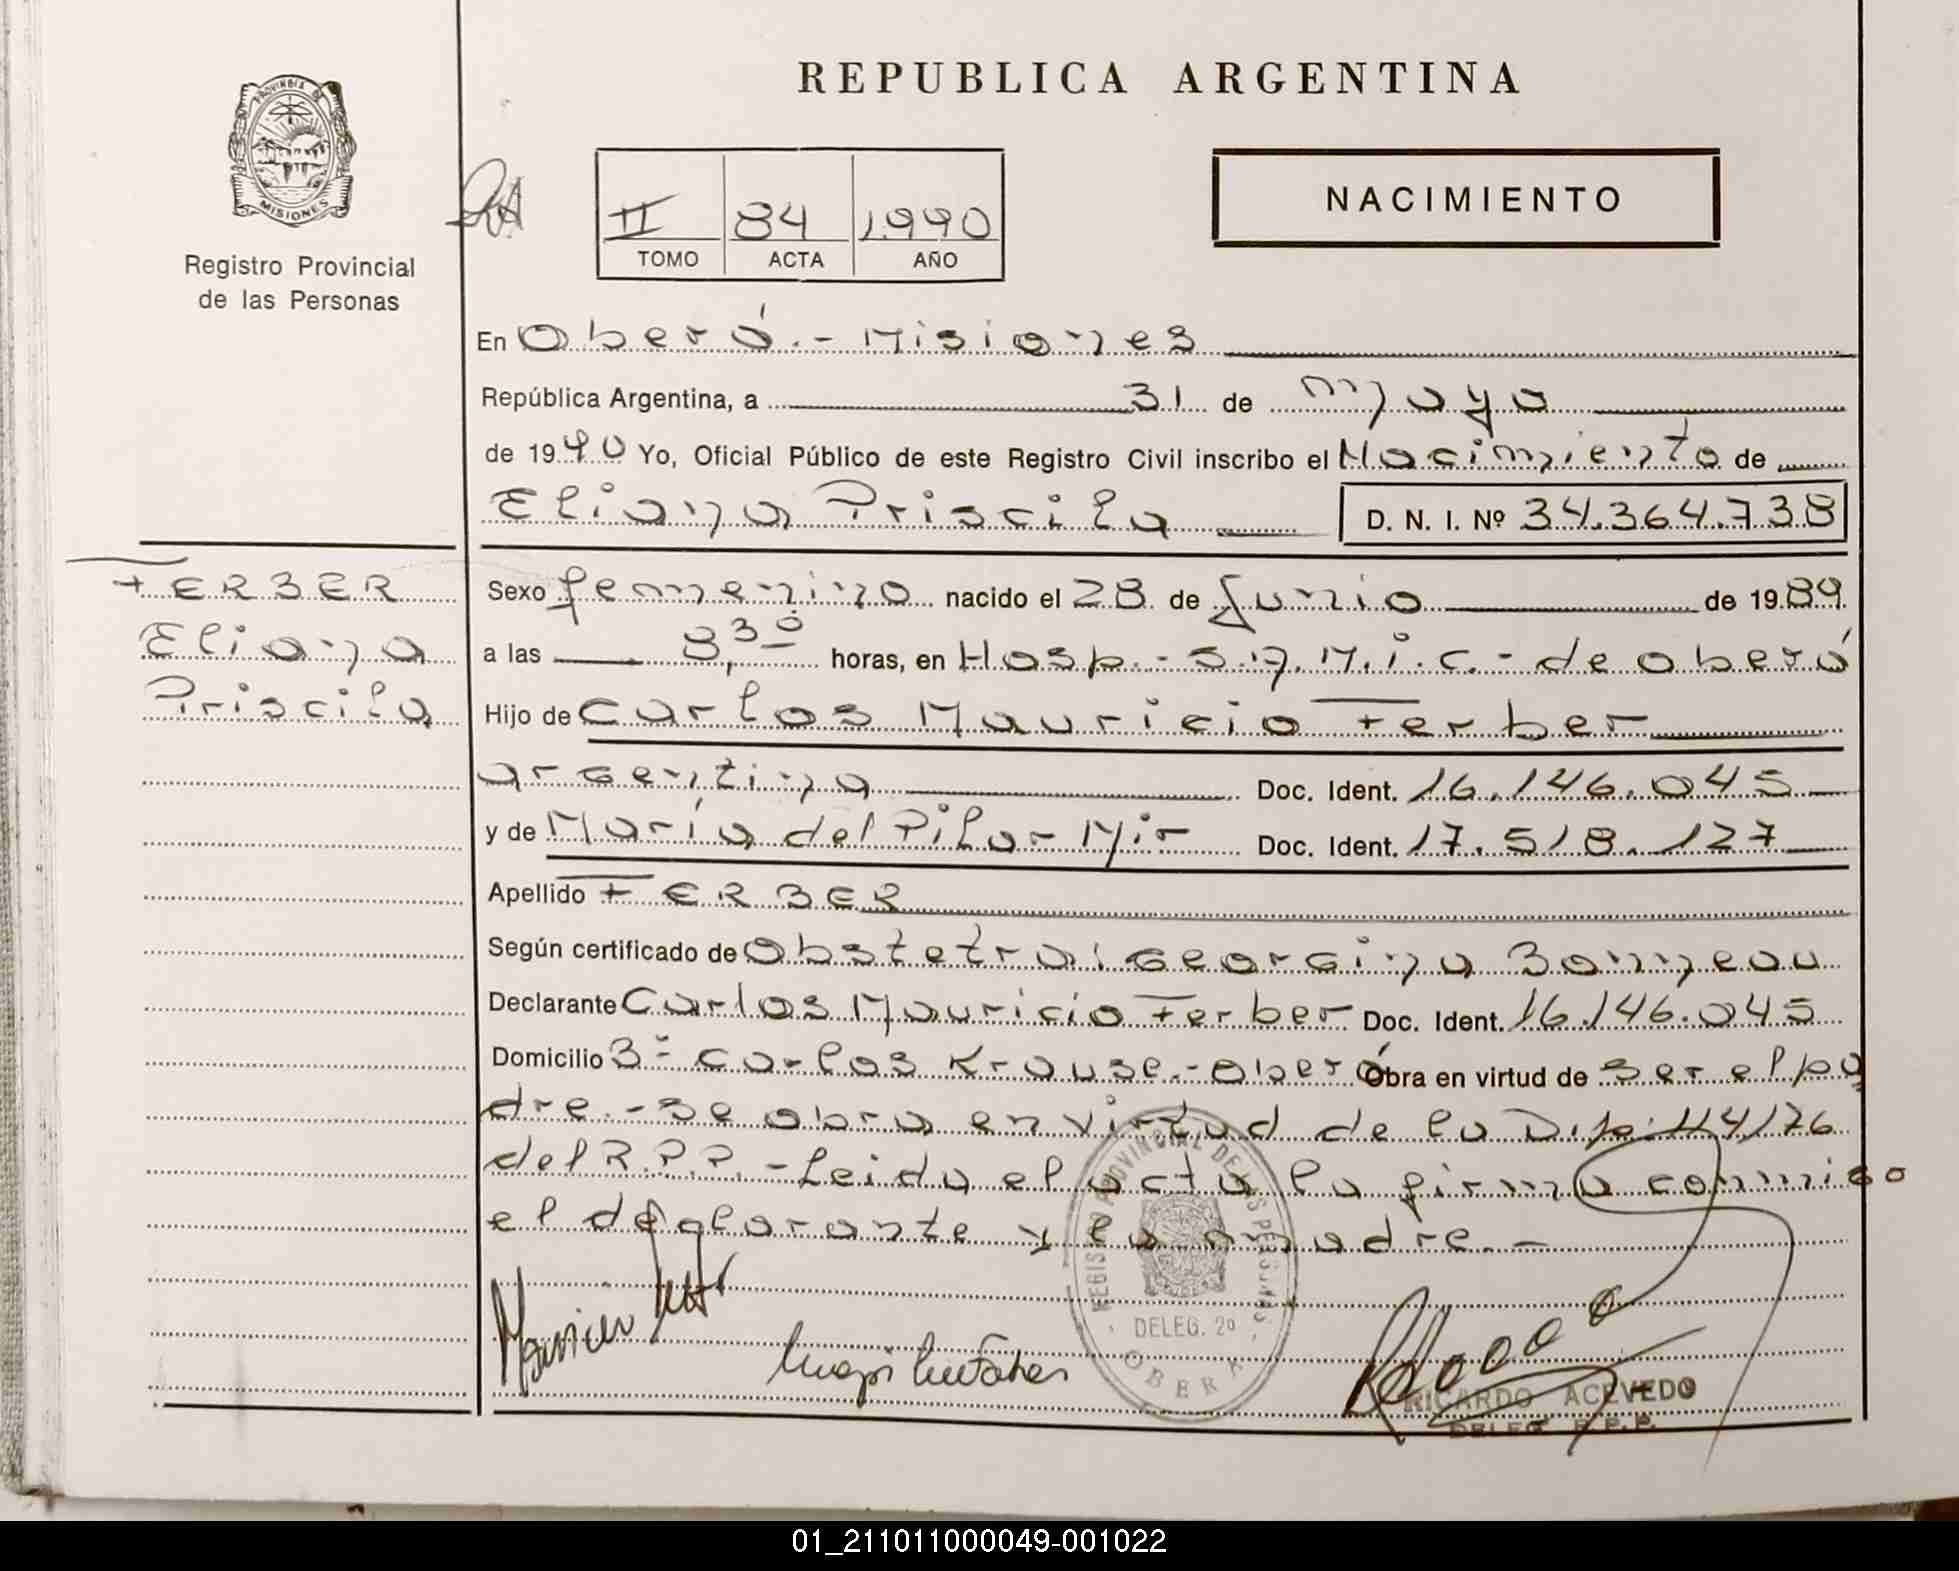 REPUBLICA ARGENTINA
PROVINCIA DE
MISIONES
Registro Provincial
de las Personas
II 84 1.990
TOMO ACTA AÑO
NACIMIENTO
En Oberá.- Misiones
República Argentina, a 31 de mayo
de 1990 Yo, Oficial Público de este Registro Civil inscribo el Nacimiento de
Eliana Priscila D. N. I. Nº 34.364.738
FERBER
Eliana
Priscila
Sexo femenino nacido el 28 de Junio de 1989
a las 8,30 horas, en Hosp.- S.A.M.i.c.- de oberá
Hijo de Carlos Mauricio Ferber
argentina Doc. Ident. 16.146.045
y de María del Pilar Mir Doc. Ident. 17.518.127
Apellido FERBER
Según certificado de Obstetra: Georgina
Declarante Carlos Mauricio Ferber Doc. Ident. 16.146.045
Domicilio 3= Carlos Krause.-Oberá Obra en virtud de ser el pa
dre.-Se obra en virtud de la Disp: 114/76
del R.P.P.-Leida el acta la firma conmigo
el declarante y la madre.-
REGISTRO PROVINCIAL DE LAS PERSONAS
DELEG. 2º
OBERA
RICARDO ACEVEDO
DELEG. R.P.P.
01_211011000049-001022